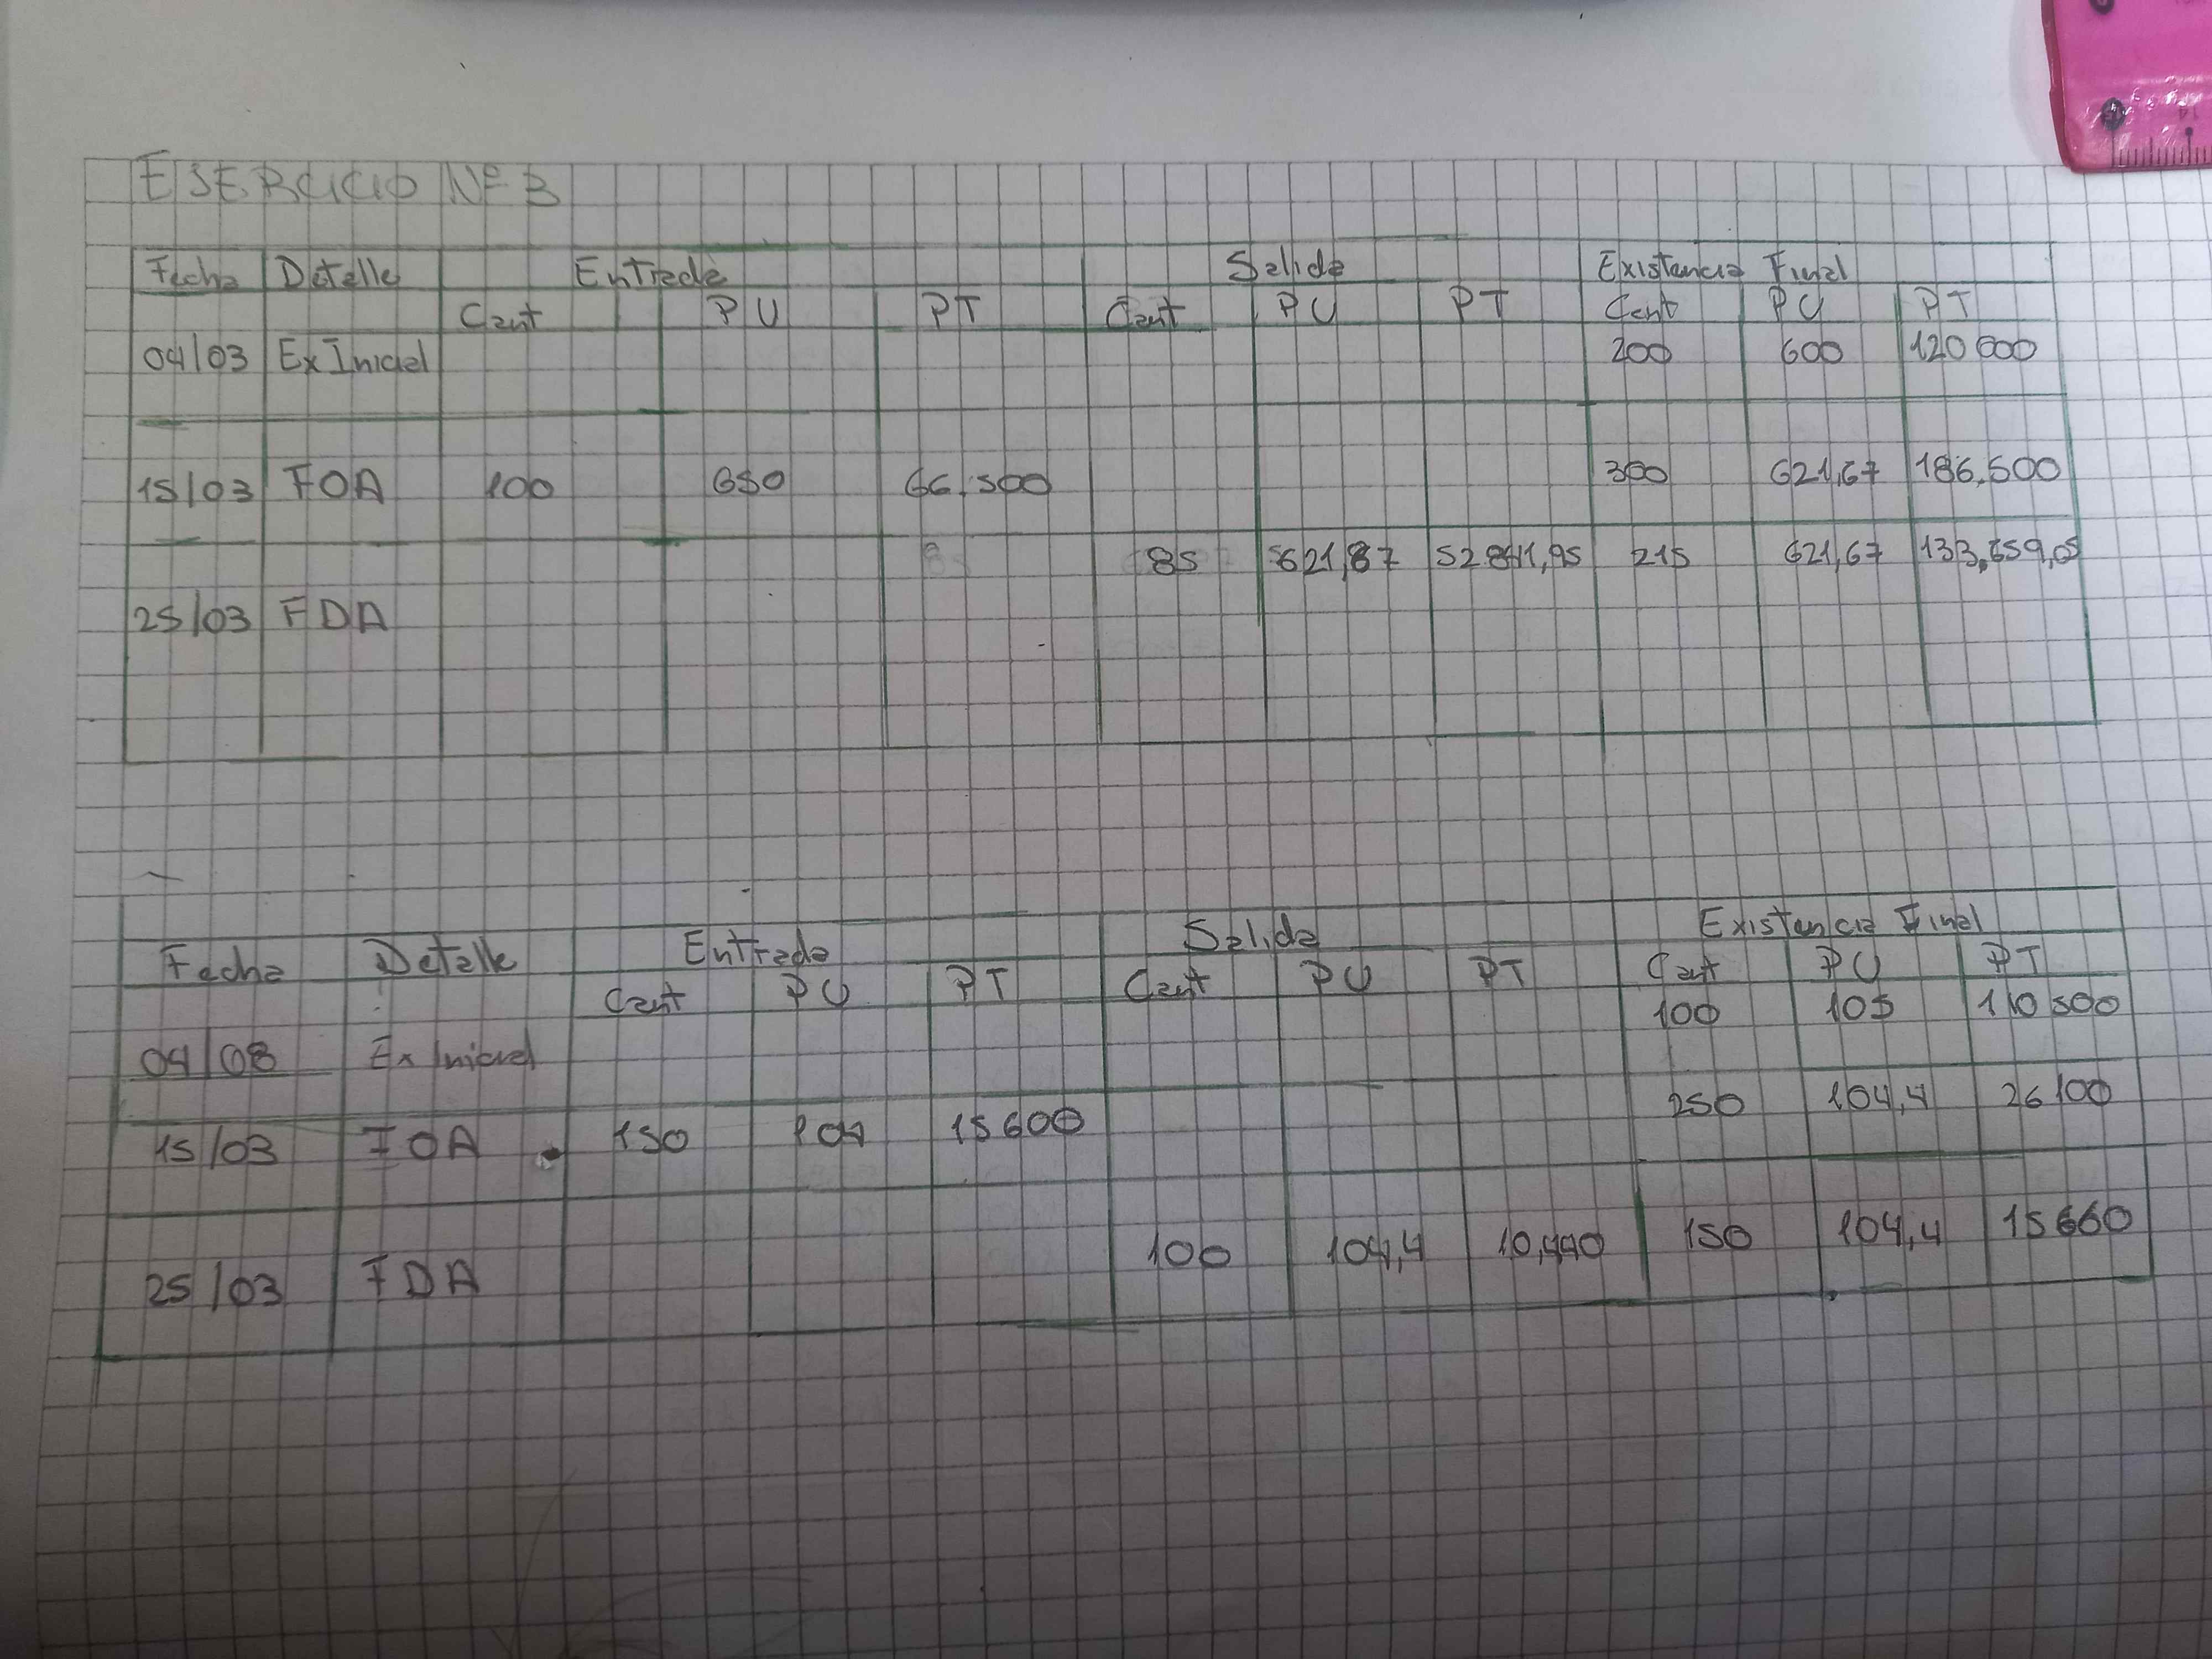 ESERCICIO Nº 3
Fecha Detalle Entrada Salida Existencia Final
Cant PU PT Cant PU PT Cant PU PT
04/03 Ex Inicial 200 600 120 000
15/03 FOA 100 650 66.500 300 621,67 186.500
85 621,87 52 841,95 215 621,67 133,659,05
25/03 FDA
Fecha Detalle Entrada Salida Existencia Final
Cant PU PT Cant PU PT Cant PU PT
04/08 Ex Inicial 100 105 110 500
15/03 FOA 150 104 15 600 250 104,4 26 100
25/03 FDA 100 104,4 10,440 150 104,4 15 660